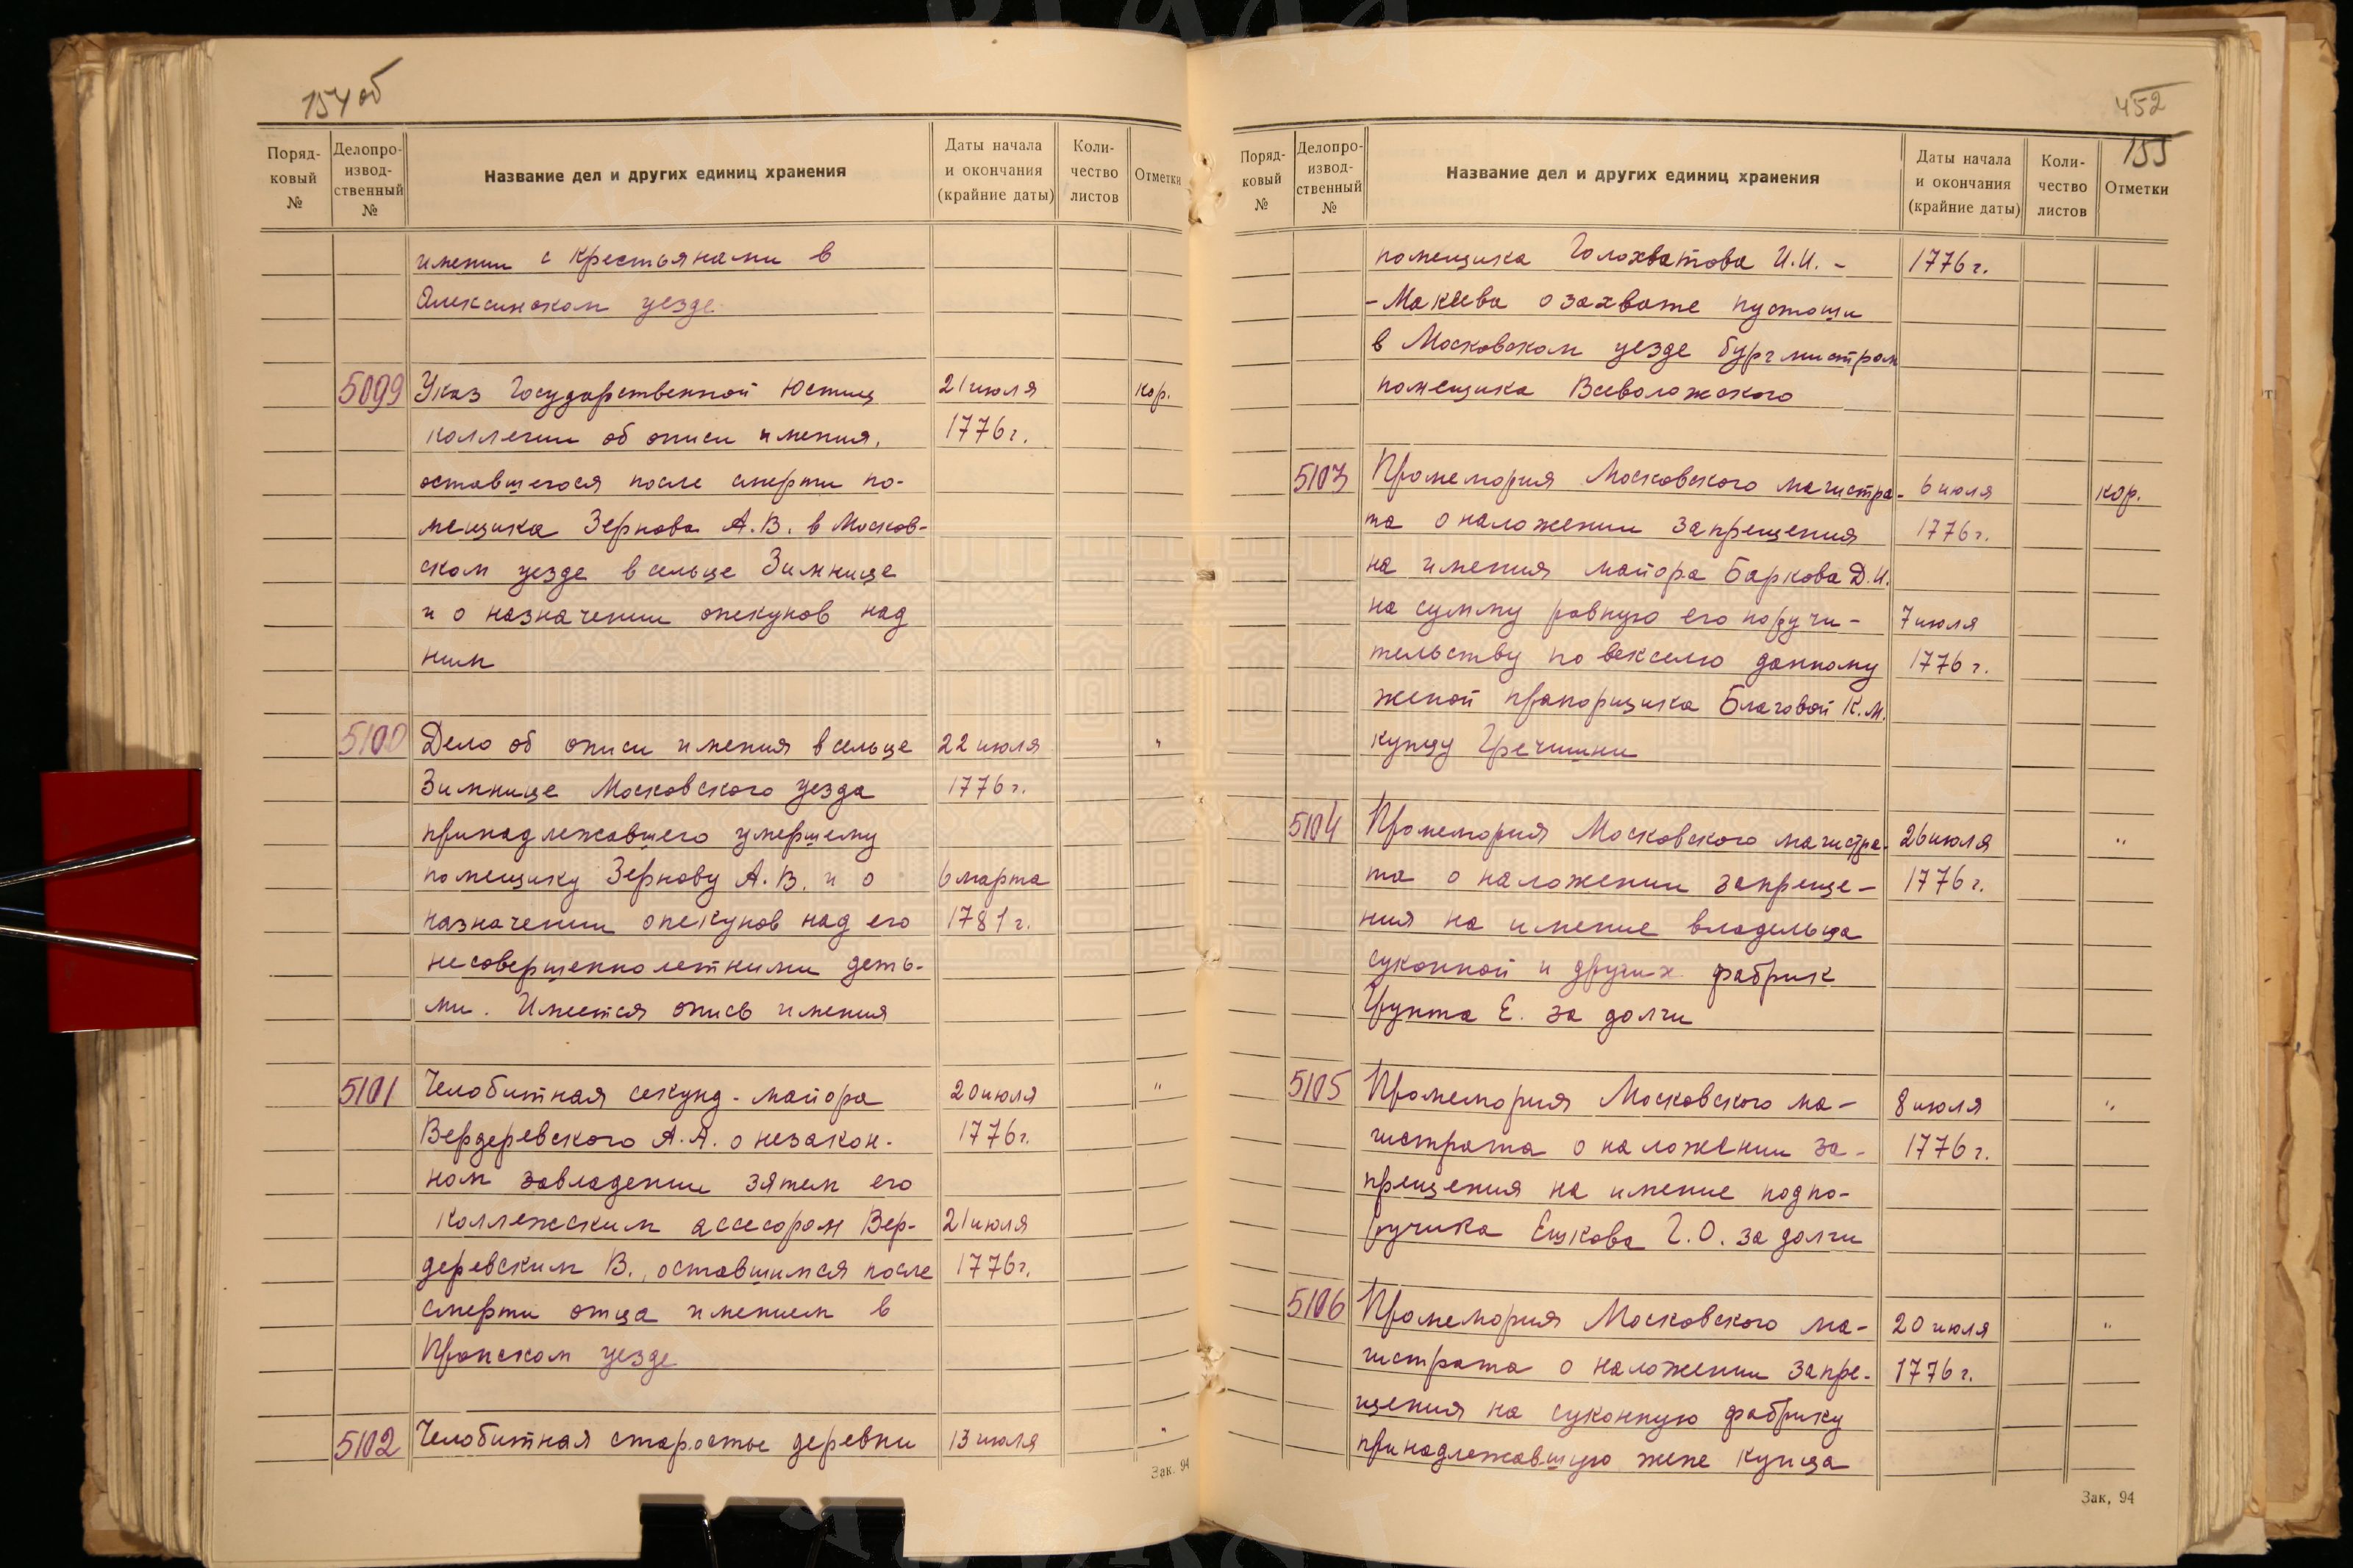 154об
Поряд-
ковый
№
Делопро-
извод-
ственный
№
Название дел и других единиц хранения
Даты начала
и окончания
(крайние даты)
Коли-
чество
листов
Отметки
имении с крестьянами в
Алексинском уезде.
5099 Указ Государственной Юстиц 21 июля кор.
коллегии об описи имения, 1776 г.
оставшегося после смерти по-
мещика Зернова А.В. в Москов-
ском уезде в сельце Зимнице
и о назначении опекунов над
ним
5100 Дело об описи имения в сельце 22 июля "
Зимнице Московского уезда 1776 г.
принадлежавшего умершему
помещику Зернову А.В. и о 6 марта
назначении опекунов над его 1781 г.
несовершеннолетними деть-
ми. Имеется опись имения
5101 Челобитная секунд-майора 20 июля "
Вердеревского А.А. о незакон- 1776г.
ном завладении зятем его
коллежским ассесором Вер- 21 июля
деревским В., оставшимся после 1776г.
смерти отца имением в
Пронском уезде
5102 Челобитная старосты деревни 13 июля "
Зак. 94
452
155
Поряд-
ковый
№
Делопро-
извод-
ственный
№
Название дел и других единиц хранения
Даты начала
и окончания
(крайние даты)
Коли-
чество
листов
Отметки
помещика Голохватова И.И. - 1776 г.
- Макеева о захвате пустоши
в Московском уезде бургмистром
помещика Всеволожского
5103 Промемория Московского магистра- 6 июля кор.
та о наложении запрещения 1776 г.
на имения майора Баркова Д.И.
на сумму равную его поручи- 7 июля
тельству по векселю данному 1776 г.
женой прапорщика Благовой К.М.
купцу Гречишни
5104 Промемория Московского магистра- 26 июля "
та о наложении запреще- 1776 г.
ния на имение владельца
суконной и других фабрик
Грунта Е. за долги
5105 Промемория Московского ма- 8 июля "
гистрата о наложении за- 1776 г.
прещения на имение подпо-
ручика Ешкова Г.О. за долги
5106 Промемория Московского ма- 20 июля "
гистрата о наложении запре- 1776 г.
щения на суконную фабрику
принадлежавшую жене купца
Зак, 94